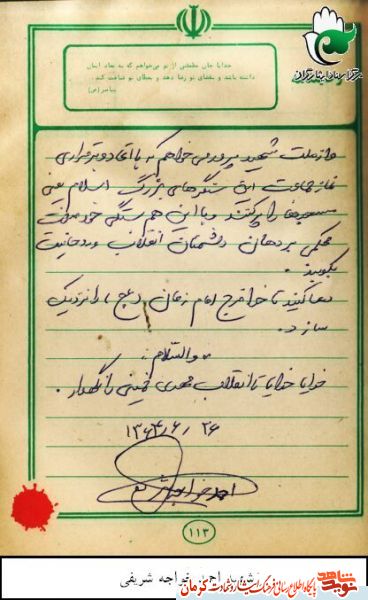 خدایا جان مطمئنی از تو می‌خواهم که به لقاء ایمان
داشته باشد و بقضای تو رضا دهد و بعطای تو قناعت کند.
پیامبر (ص)
و از ملت شهید پرور می خواهم که با اتحاد و برقراری
نماز جماعت این سنگرهای بزرگ اسلام یعنی
مسجدها را پر کنند و با این هم سنگی خود مشت
محکمی بر دهان دشمنان انقلاب و روحانیت
بکوبند.
دعا کنید تا خدا فرج امام زمان (عج) را نزدیک
سازد.
والسلام
خدایا خدایا تا انقلاب مهدی خمینی را نگهدار.
۱۳۶۴/۶/۲۶
احمد خواجه شریفی
۱۱۳
شهید احمد خواجه شریفی
نوید شاهد
پایگاه اطلاع رسانی فرهنگ ایثار و شهادت کرمان